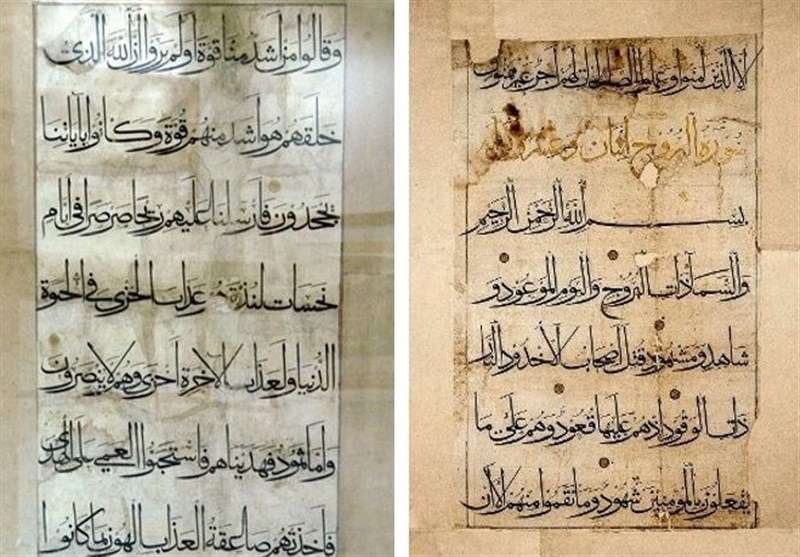 الا الذين امنوا وعملوا الصالحات لهم اجر غير ممنون
سورة البروج اثنان وعشرون
بسم الله الرحمن الرحيم
والسماء ذات البروج واليوم الموعود و
شاهد ومشهود قتل اصحاب الاخدود النار
ذات الوقود اذ هم عليها قعود وهم على ما
يفعلون بالمومنين شهود وما نقموا منهم الا ان
وقالوا من اشد منا قوة اولم يروا ان الله الذى
خلقهم هو اشد منهم قوة وكانوا باياتنا
يجحدون فارسلنا عليهم ريحا صرصرا فى ايام
نحسات لنذيقهم عذاب الخزى فى الحيوة
الدنيا ولعذاب الاخرة اخزى وهم لا ينصرون
واما ثمود فهديناهم فاستحبوا العمى على الهدى
فاخذتهم صاعقة العذاب الهون بما كانوا